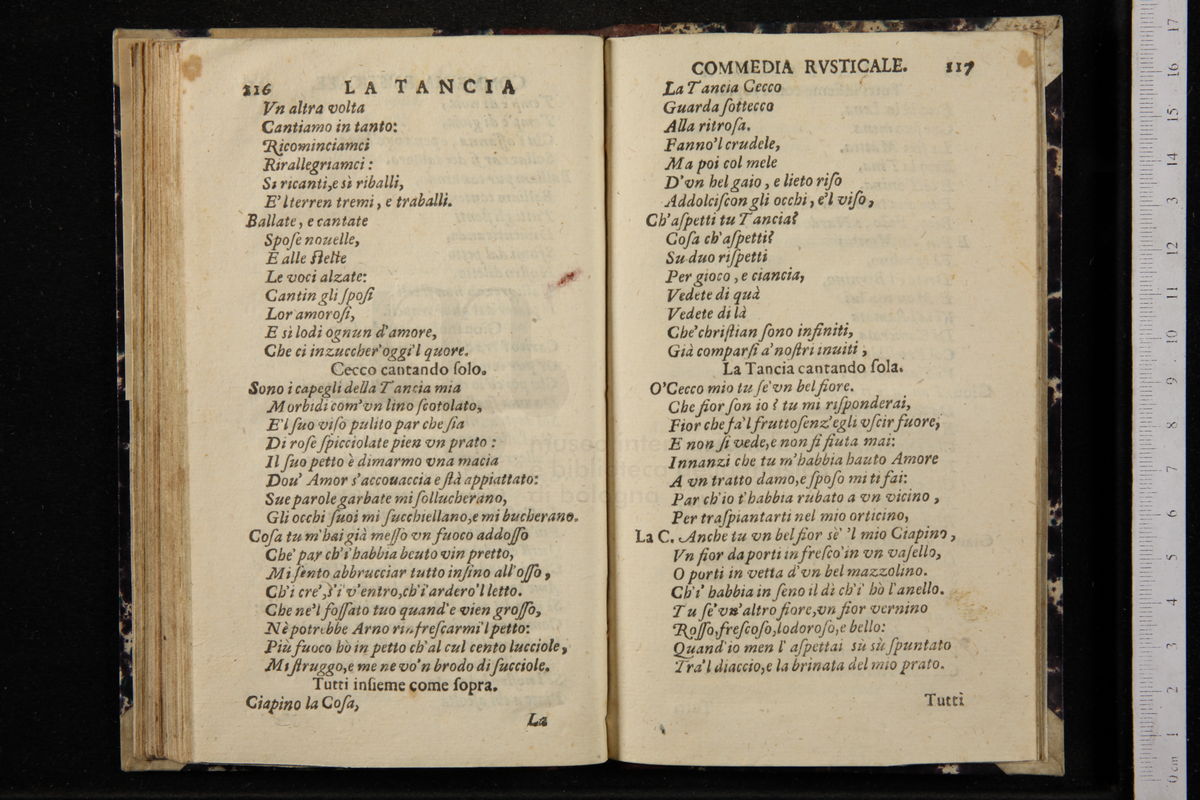 116 LA TANCIA
Vn altra volta
Cantiamo in tanto:
Ricominciamci
Rirallegriamci:
Si ricanti,e sì riballi,
E'l terren tremi, e traballi.
Ballate, e cantate
Spoſe nouelle,
E alle ſtelle
Le voci alzate:
Cantin gli ſpoſi
Lor amoroſi,
E sì lodi ognun d'amore,
Che ci inzuccher'oggi'l quore.
Cecco cantando ſolo.
Sono i capegli della Tancia mia
Morbidi com'vn lino ſcotolato,
E'l ſuo viſo pulito par che ſia
Di roſe ſpicciolate pien vn prato:
Il ſuo petto è dimarmo vna macia
Dou' Amor s'accouaccia e ſtà appiattato:
Sue parole garbate mi ſollucherano,
Gli occhi ſuoi mi ſucchiellano,e mi bucherano.
Coſa tu m'hai già meſſo vn fuoco addoſſo
Che' par ch'i'habbia beuto vin pretto,
Mi ſento abbrucciar tutto inſino all'oſſo,
Ch'i cre',s'i v'entro,ch'i'ardero'l letto.
Che ne'l foſſato tuo quand'e vien groſſo,
Nè potrebbe Arno rinfreſcarmi'l petto:
Più fuoco hò in petto ch'al cul cento lucciole,
Mi ſtruggo,e me ne vo'n brodo di ſucciole.
Tutti inſieme come ſopra.
Ciapino la Coſa,
La
COMMEDIA RVSTICALE. 117
La Tancia Cecco
Guarda ſottecco
Alla ritroſa.
Fanno'l crudele,
Ma poi col mele
D'vn bel gaio, e lieto riſo
Addolciſcon gli occhi, e'l viſo,
Ch'aſpetti tu Tancia?
Coſa ch'aſpetti?
Su duo riſpetti
Per gioco, e ciancia,
Vedete di quà
Vedete di là
Che'chriſtian ſono infiniti,
Già comparſi a'noſtri inuiti,
La Tancia cantando ſola.
O'Cecco mio tu ſe'vn bel fiore.
Che fior ſon io? tu mi riſponderai,
Fior che fa'l fruttoſenz'egli vſcir fuore;
E non ſi vede,e non ſi fiuta mai:
Innanzi che tu m'habbia hauto Amore
A vn tratto damo,e ſpoſo mi ti fai:
Par ch'io t'habbia rubato a vn vicino,
Per traſpiantarti nel mio orticino,
La C. Anche tu vn bel fior sè' 'l mio Ciapino,
Vn fior da porti in freſco'in vn vaſello,
O porti in vetta d'vn bel mazzolino.
Ch'i' habbia in ſeno il dì ch'i' hò l'anello.
Tu ſe'vn'altro fiore,vn fior vernino
Roſſo,freſcoſo,lodoroſo,e bello:
Quand'io men l'aſpettai sù sù ſpuntato
Tra'l diaccio,e la brinata del mio prato.
Tutti